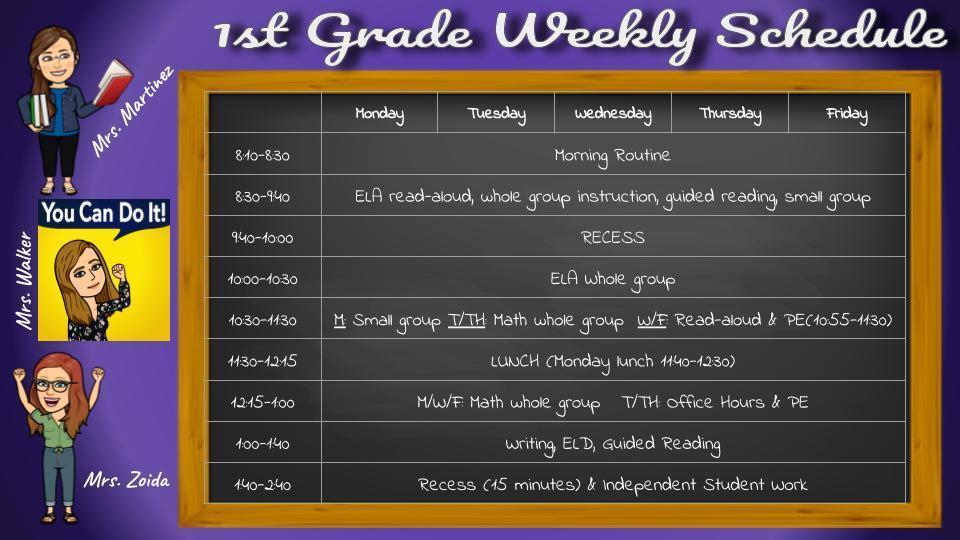 1st Grade Weekly Schedule
Mrs. Martinez
You Can Do It!
Mrs. Walker
Mrs. Zoida
Monday Tuesday Wednesday Thursday Friday
8:10-8:30 Morning Routine
8:30-9:40 ELA read-aloud, whole group instruction, guided reading, small group
9:40-10:00 RECESS
10:00-10:30 ELA whole group
10:30-11:30 M: Small group T/TH: Math whole group W/F: Read-aloud & PE(10:55-11:30)
11:30-12:15 LUNCH (Monday lunch 11:40-12:30)
12:15-1:00 M/W/F: Math whole group T/TH: Office Hours & PE
1:00-1:40 Writing, ELD, Guided Reading
1:40-2:40 Recess (15 minutes) & Independent Student Work